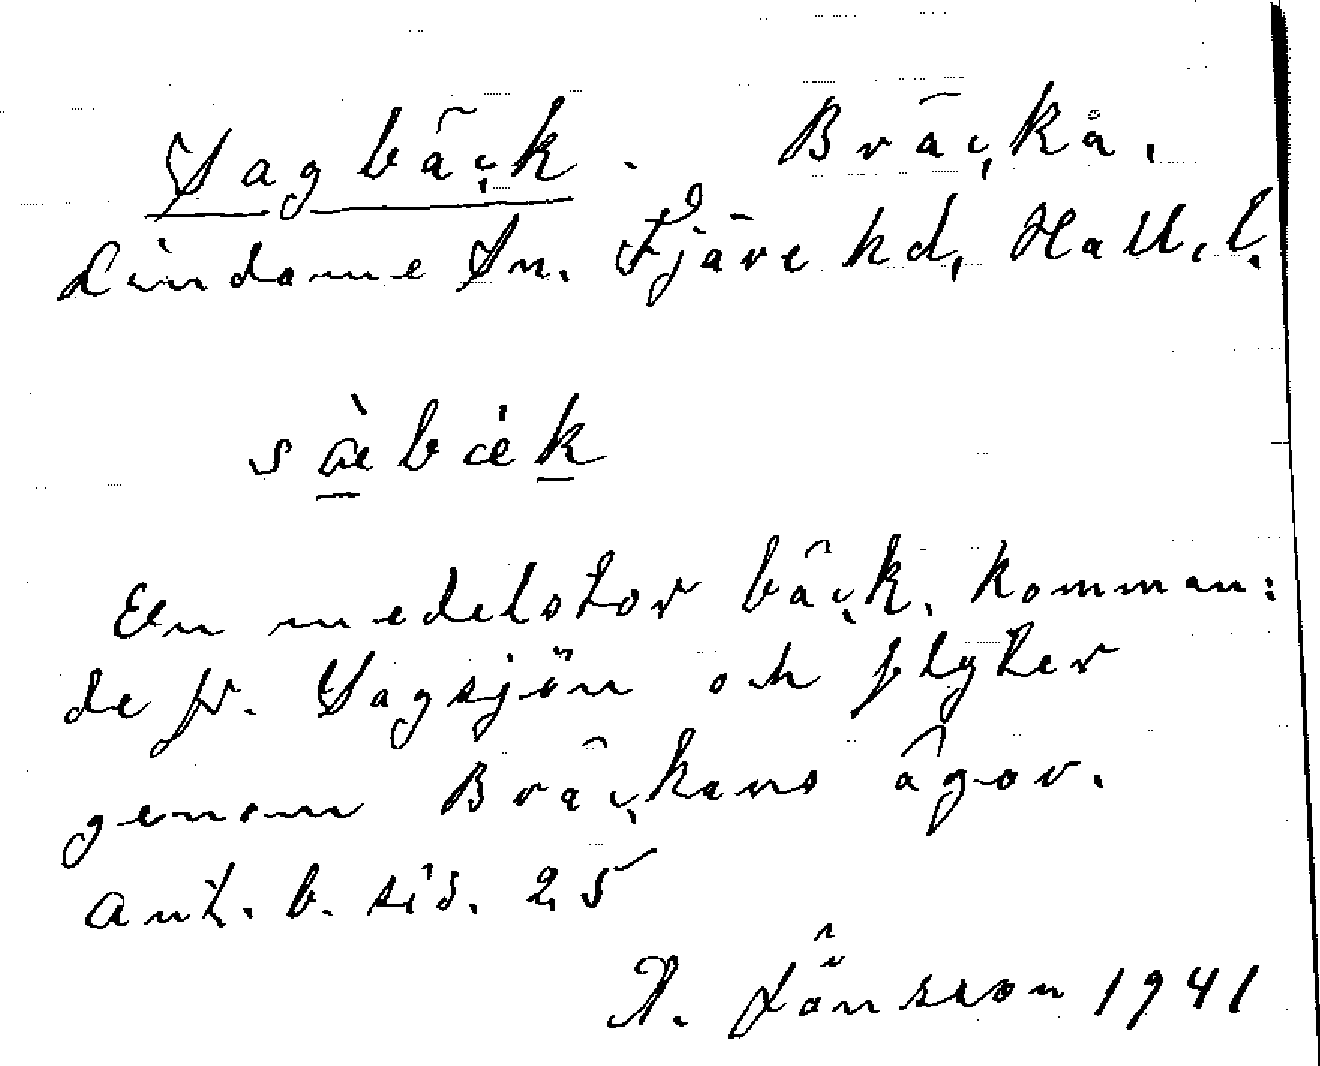 Sagbäck. Bräckå,
Lindome Sn. Fjäre hd, Hall. l.
sæ̀bæk
En medelstor bäck, komman:
de fr. Sagsjön och flyter
genom Bräckans ägor.
Ant. b. sid. 25
A. Jönsson 1941